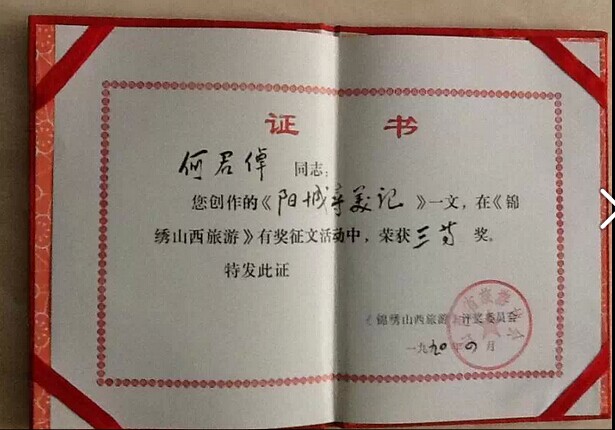 证 书
何君倬 同志：
您创作的《阳城寻美记》一文，在《锦
绣山西旅游》有奖征文活动中，荣获三等 奖。
特发此证
《锦绣山西旅游》评奖委员会
一九九〇年四月